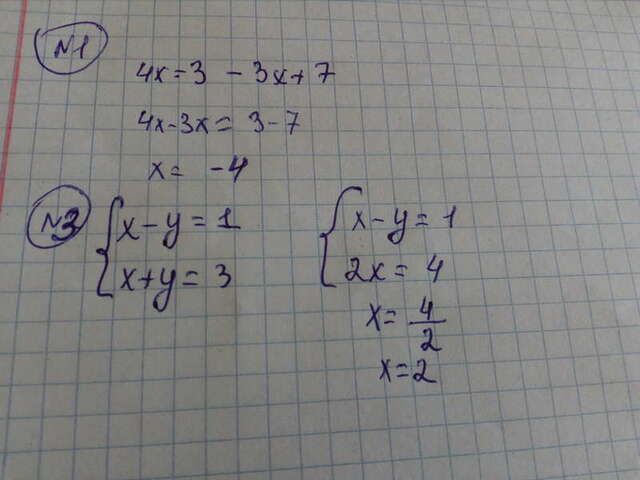 №1
4x=3 - 3x+7
4x-3x= 3-7
x= -4
№3
{x-y=1
x+y=3
{x-y=1
2x=4
x=4/2
x=2